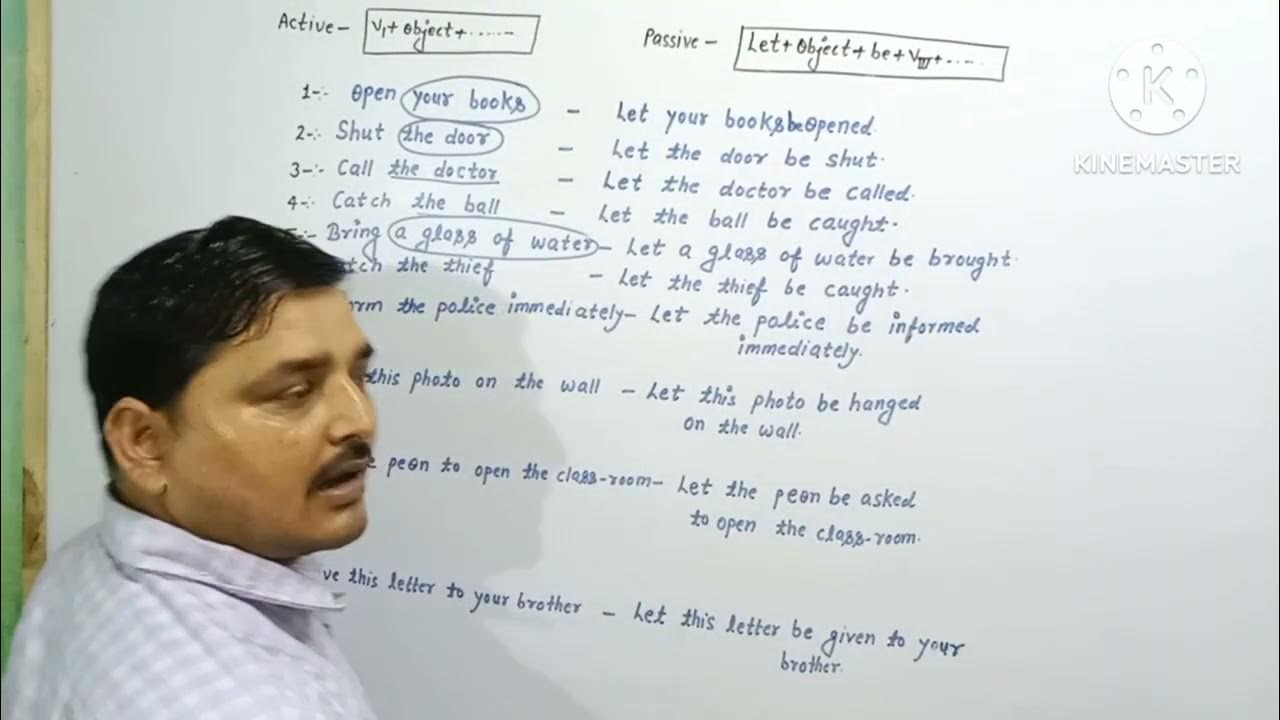 Active - V₁ + Object + ......
Passive - Let + Object + be + VIII + ....
1-:- Open your books - Let your books be opened.
2-:- Shut the door - Let the door be shut.
3-:- Call the doctor - Let the doctor be called.
4-:- Catch the ball - Let the ball be caught.
Bring a glass of water - Let a glass of water be brought.
the thief - Let the thief be caught.
the police immediately - Let the police be informed
immediately.
this photo on the wall - Let this photo be hanged
on the wall.
peon to open the class-room - Let the peon be asked
to open the class-room.
this letter to your brother - Let this letter be given to your
brother.
K
KINEMASTER